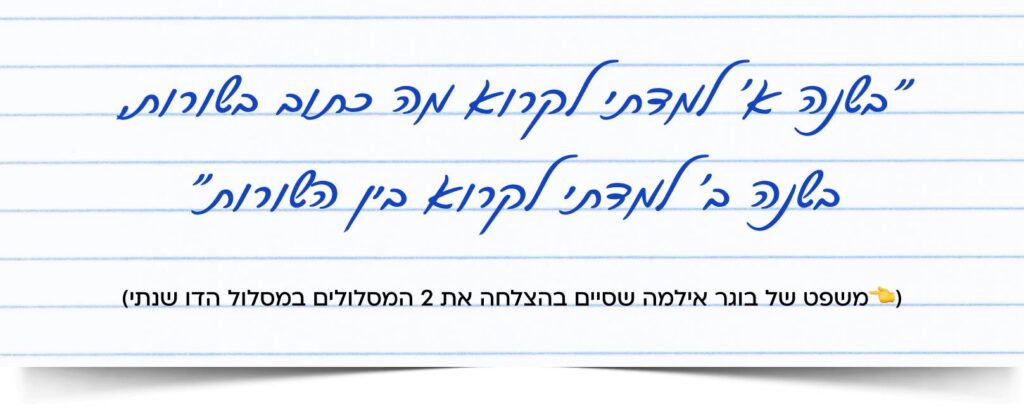 "בשנה א' למדתי לקרוא מה כתוב בשורות,
בשנה ב' למדתי לקרוא בין השורות"
(👈משפט של בוגר אילמה שסיים בהצלחה את 2 המסלולים במסלול הדו שנתי)